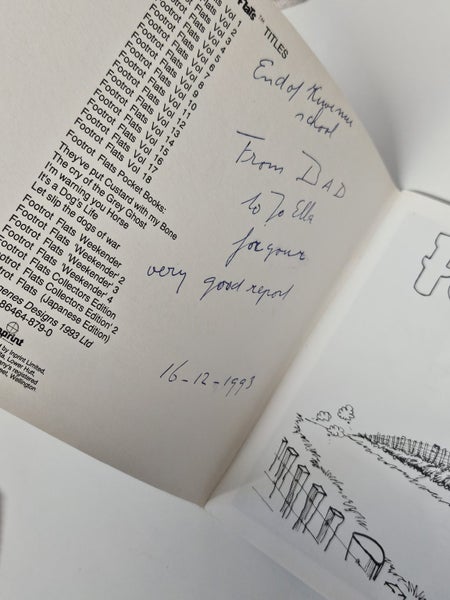 Flats™ TITLES
Footrot Flats Vol 2
Footrot Flats Vol 3
Footrot Flats Vol 4
Footrot Flats Vol 5
Footrot Flats Vol 6
Footrot Flats Vol 7
Footrot Flats Vol 8
Footrot Flats Vol 9
Footrot Flats Vol 10
Footrot Flats Vol 11
Footrot Flats Vol 12
Footrot Flats Vol 13
Footrot Flats Vol 14
Footrot Flats Vol 15
Footrot Flats Vol 16
Footrot Flats Vol 17
Footrot Flats Vol 18
Footrot Flats Pocket Books:
They've put Custard with my Bone
The cry of the Grey Ghost
I'm warning you Horse
It's a Dog's Life
Let slip the dogs of war
Footrot Flats Weekender
Footrot Flats Weekender 2
Footrot Flats Weekender 3
Footrot Flats Weekender 4
Footrot Flats Collectors Edition
Footrot Flats Collectors Edition 2
Footrot Flats (Japanese Edition)
Designs 1993 Ltd
86464-879-0
Inprint
by Inprint Limited.
Lower Hutt,
registered
Wellington
End of
school
From DAD
to Jo Ella
for your
very good report
16-12-1993